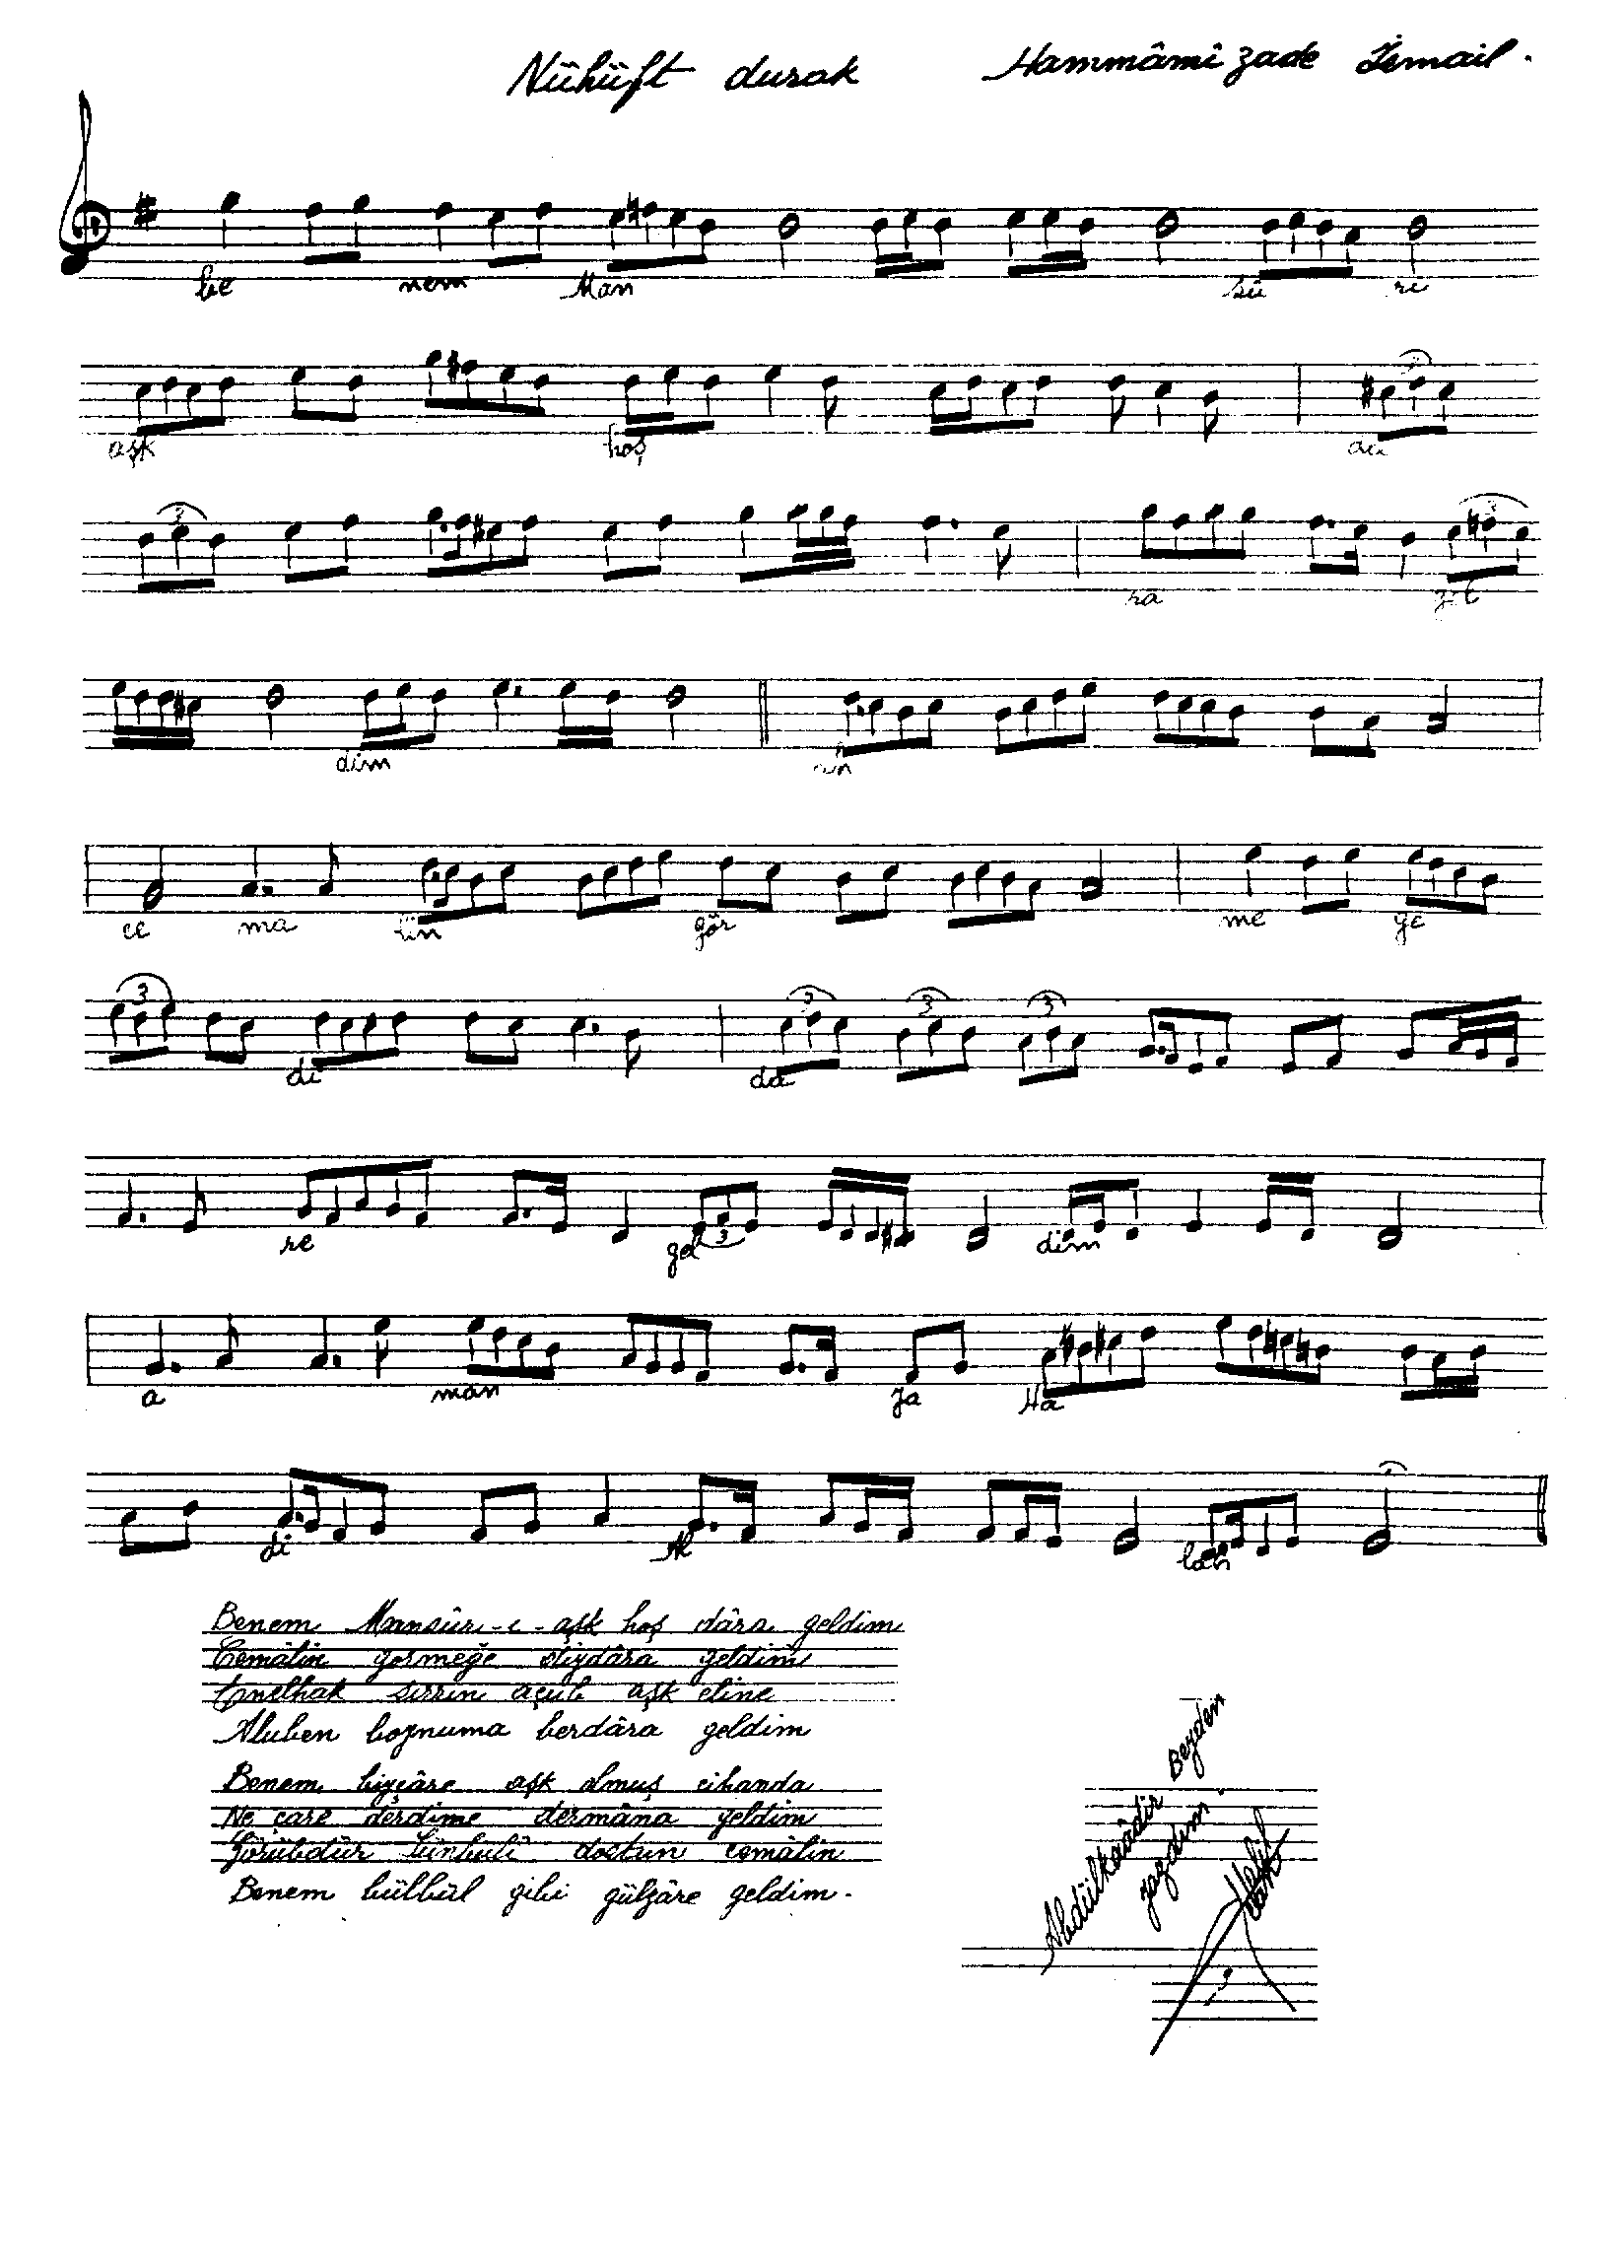 Nühüft durak Hammâmî zade İsmail.
be nem Man sû ri
aşk hoş
ra
dim
ce ma lin gör me ge
di da
re gel dim
a man Ya Ha
di Al lah
Benem Mansûr-ı-aşk hoş dâra geldim
Cemâlin görmeğe dîydâra geldim
Enelhak sırrın açub aşk eline
Aluben boynuma berdâra geldim
Benem biyçâre aşk olmuş cihanda
Ne çare derdime dermâna geldim
Görübdür Sünbülî dostun cemâlin
Benem bülbül gibi gülzâre geldim.
Abdülkaadir Beyden
yazdım.